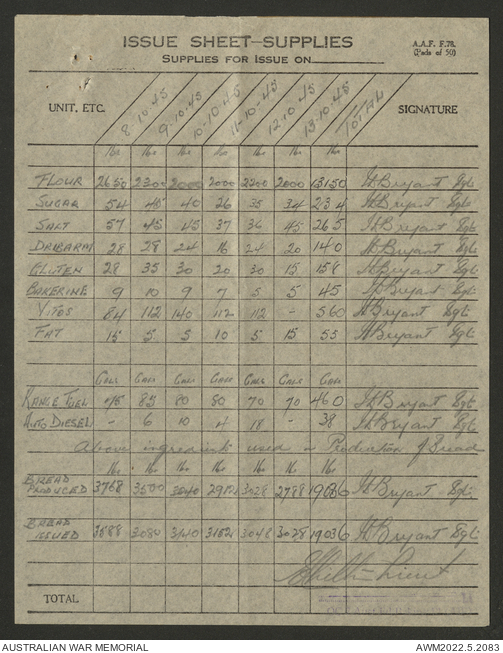 ISSUE SHEET—SUPPLIES
A.A.F. F.78.
(Pads of 50)
SUPPLIES FOR ISSUE ON
UNIT, ETC. 8-10-45 9-10-45 10-10-45 11-10-45 12-10-45 13-10-45 TOTAL SIGNATURE
lbs lbs lbs lbs lbs lbs lbs
FLOUR 2650 2300 2000 2000 2200 2000 13150 H Bryant Sgt.
SUGAR 54 45 40 26 35 34 234 H Bryant Sgt.
SALT 57 45 45 37 36 45 265 H Bryant Sgt.
DRIBARM 28 28 24 16 24 20 140 H Bryant Sgt.
GLUTEN 28 35 30 20 30 15 158 H Bryant Sgt.
BAKERINE 9 10 9 7 5 5 45 H Bryant Sgt.
VITOS 84 112 140 112 112 - 560 H Bryant Sgt.
FAT 15 5 5 10 5 15 55 H Bryant Sgt.
GALS GALS GALS GALS GALS GALS GALS
RANGE FUEL 75 85 80 80 70 70 460 H Bryant Sgt.
AUTO DIESEL - 6 10 4 18 - 38 H Bryant Sgt.
Above ingredients used in Production of Bread
lbs lbs lbs lbs lbs lbs lbs
BREAD PRODUCED 3768 3500 3040 2912 3028 2788 19036 H Bryant Sgt.
BREAD ISSUED 3588 3080 3140 3152 3048 3028 19036 H Bryant Sgt.
Lieut
TOTAL
AUSTRALIAN WAR MEMORIAL
AWM2022.5.2083